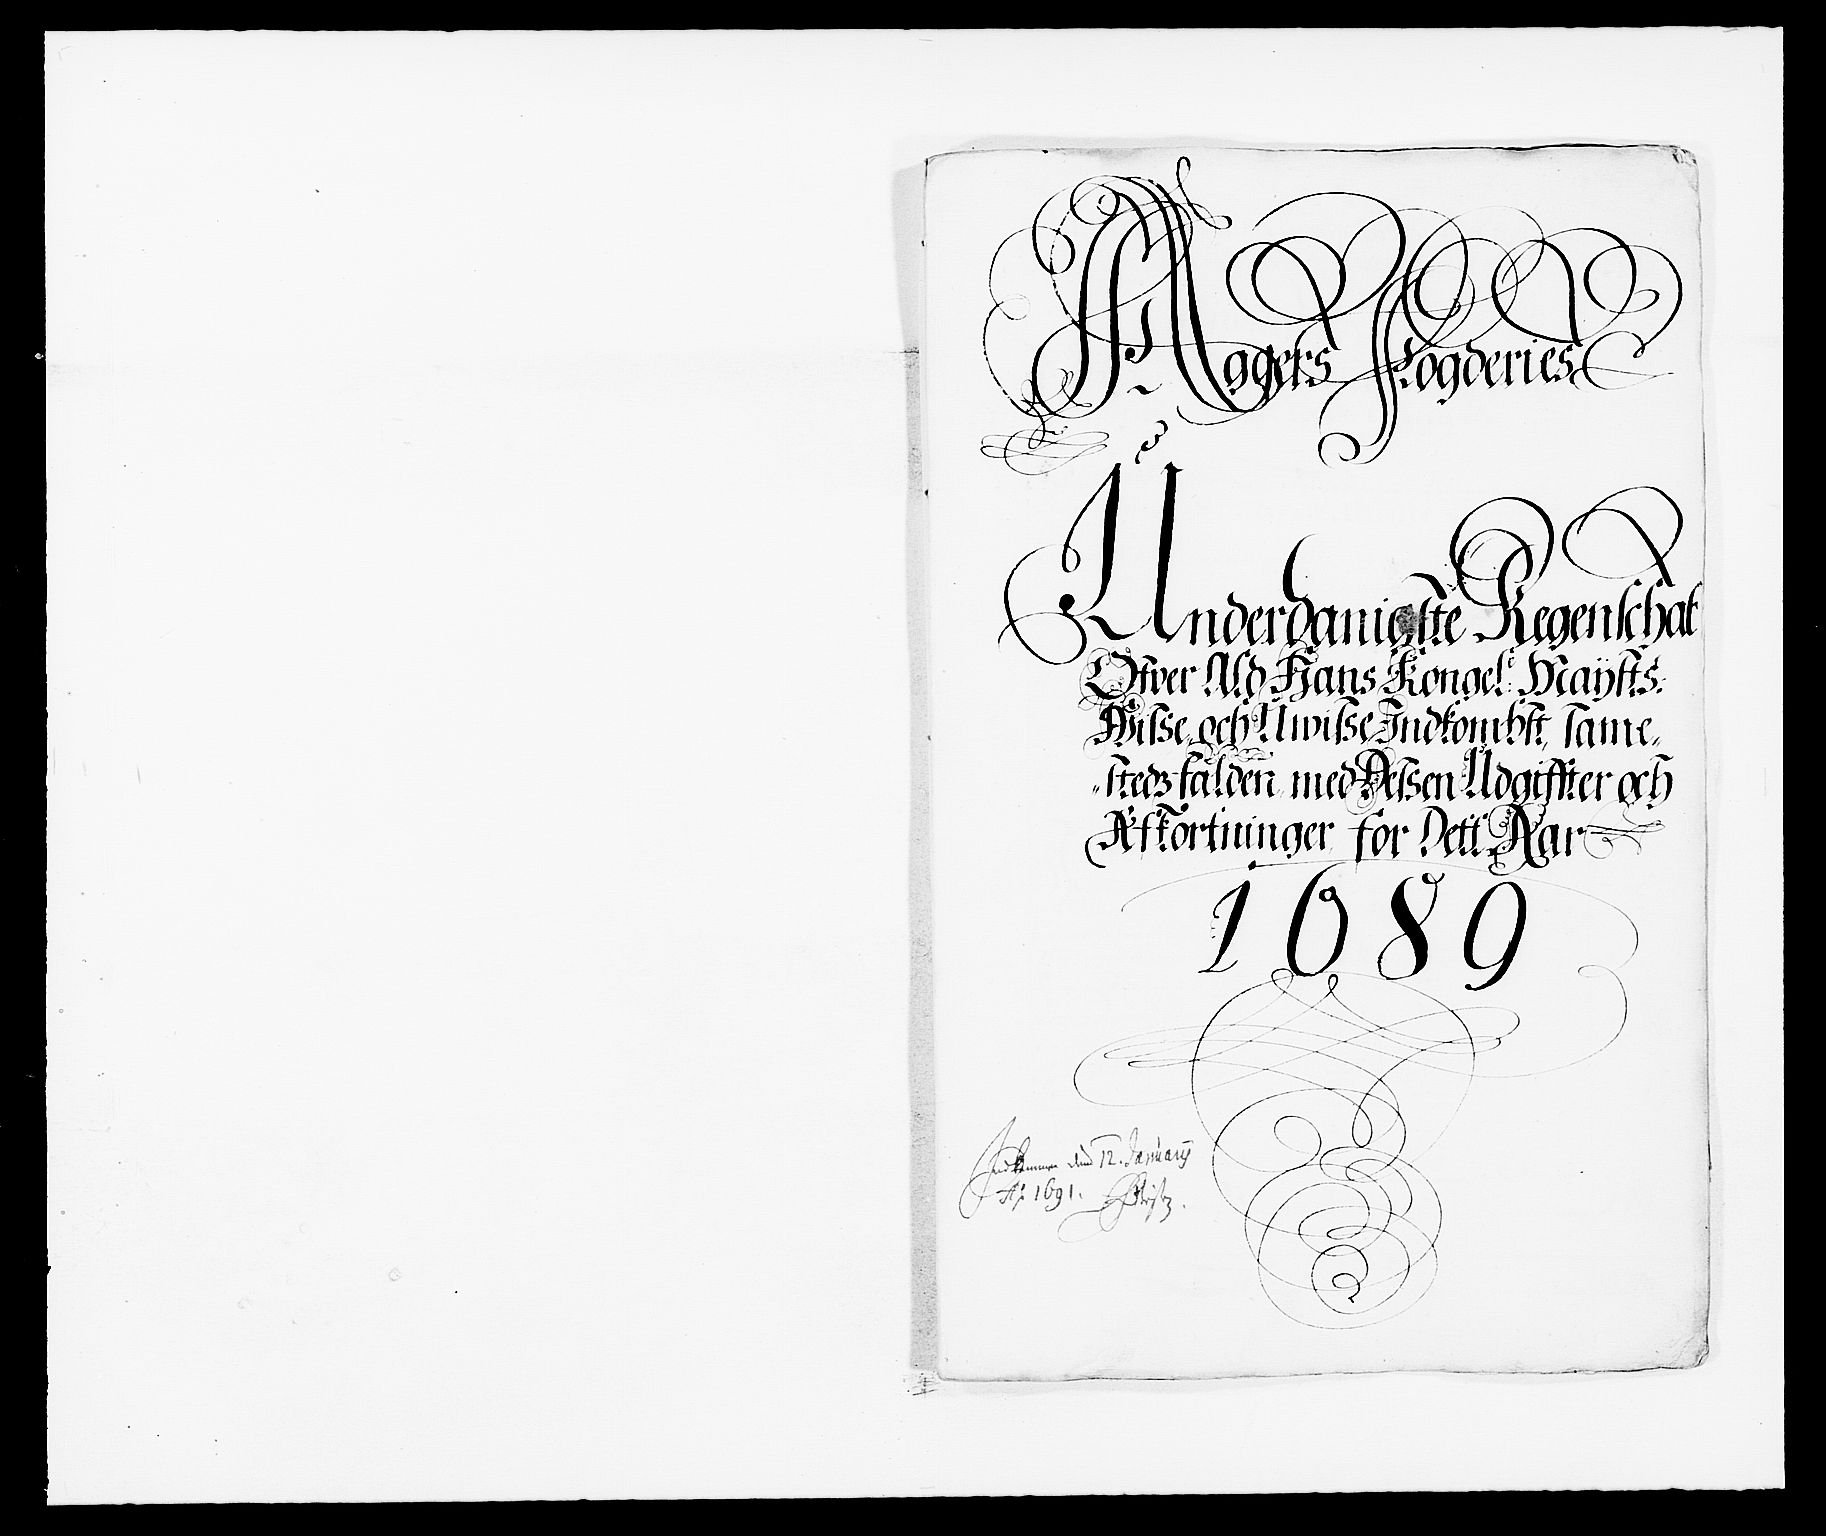 Aggers Fogderies
Underdanigste Regenschab
Ofver Ald Hans Kongel: Mayts:
Wisse, och Uwisse Indkombst, same„
„steds falden, med Dessen Udgiffter och
Afkortninger, for Dett Aar
1689
Indkommen den 12. January
Ao 1691.